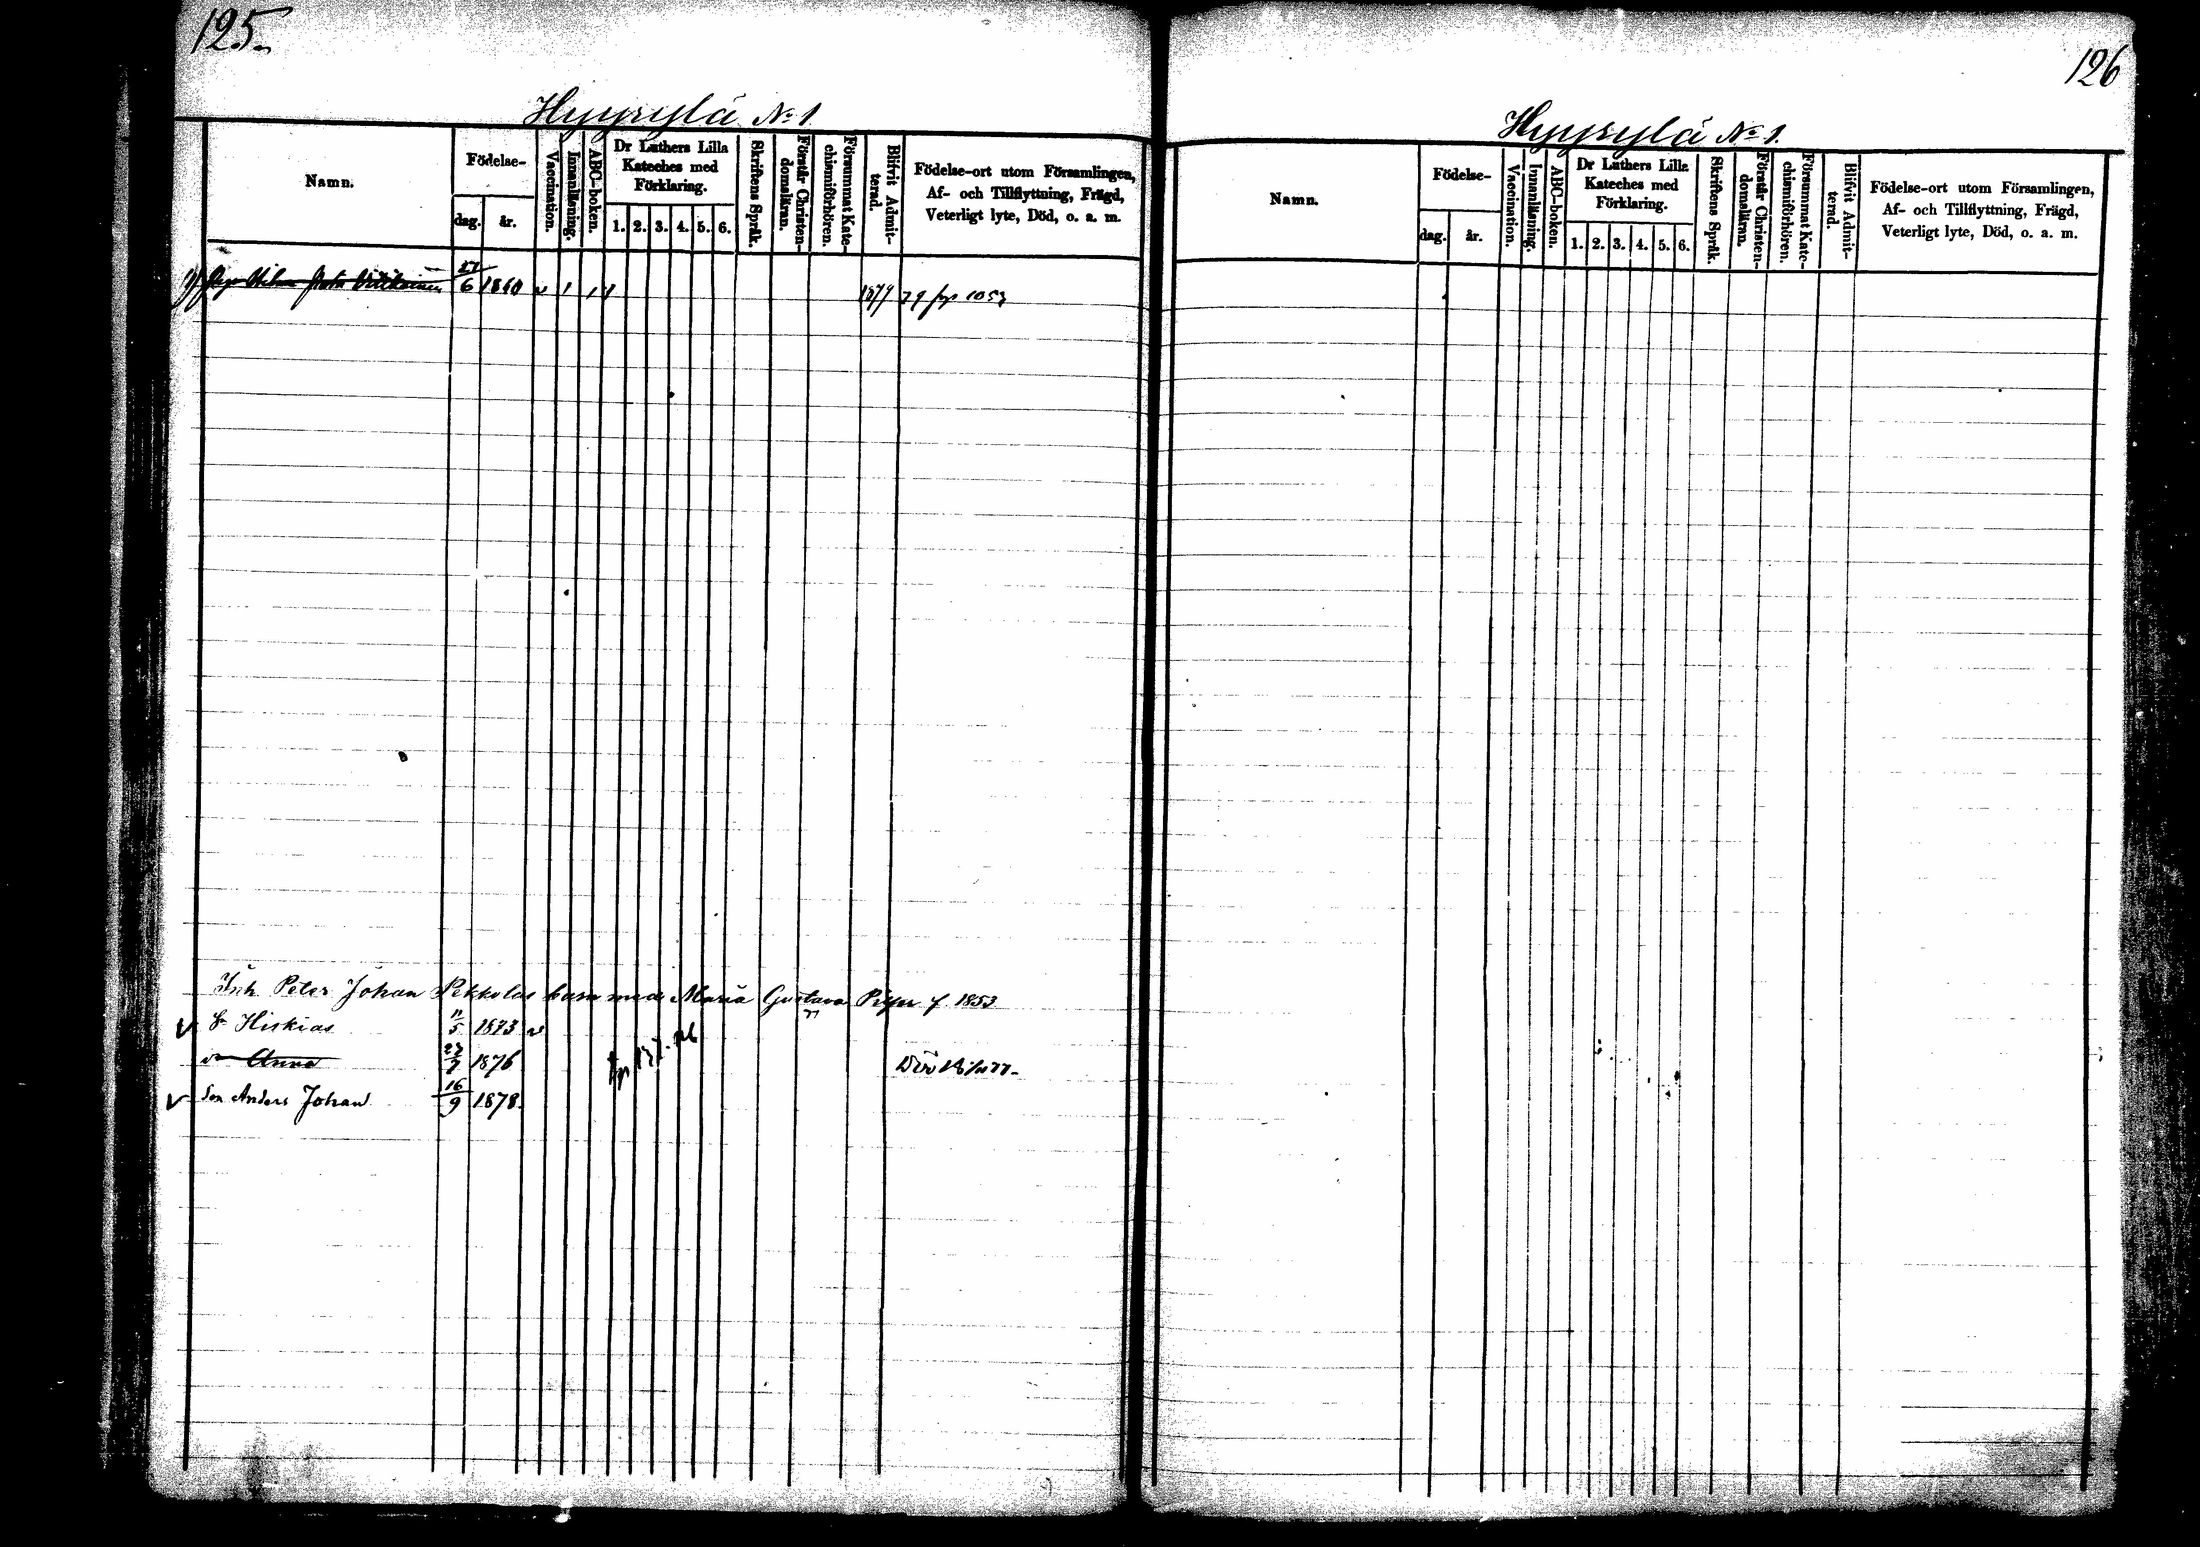 125.
Hyyrylä No 1
Namn.
Födelse-
dag. år.
Vaccination.
Innanläsning.
ABC-boken.
Dr Luthers Lilla
Kateches med
Förklaring.
1. 2. 3. 4. 5. 6.
Skriftens Språk.
Förstår Christen-
domsläran.
Försummat Kate-
chismiförhören.
Blifvit Admit-
terad.
Födelse-ort utom Församlingen,
Af- och Tillflyttning, Frägd,
Veterligt lyte, Död, o. a. m.
27/6 1860 v 1 1 1 1879 79
Inh Peter Johan Pekkolas barn med Maria Gustava f. 1853
Hiskias 11/5 1873 v
Anna 27/7 1876
Son Anders Johan 16/9 1878.
126
Hyyrylä No 1.
Namn.
Födelse-
dag. år.
Vaccination.
Innanläsning.
ABC-boken.
Dr Luthers Lilla
Kateches med
Förklaring.
1. 2. 3. 4. 5. 6.
Skriftens Språk.
Förstår Christen-
domsläran.
Försummat Kate-
chismiförhören.
Blifvit Admit-
terad.
Födelse-ort utom Församlingen,
Af- och Tillflyttning, Frägd,
Veterligt lyte, Död, o. a. m.